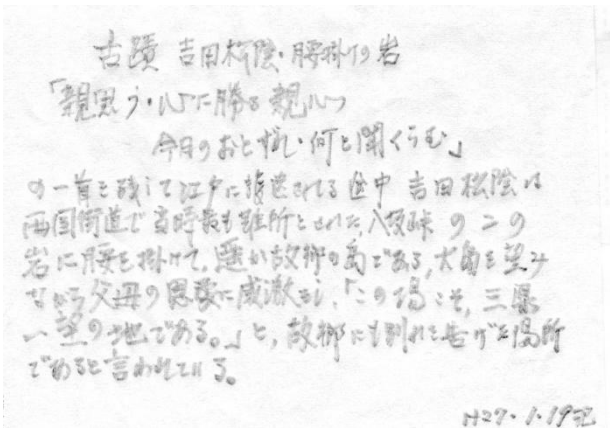 古蹟 吉田松陰・腰掛けの岩
「親思う・心に勝る親心
今日のおとずれ・何と聞くらむ」
の一首を残して江戸に護送される途中 吉田松陰は
西国街道で当時最も難所とされた,八坂峠のこの
岩に腰を掛けて,遥か故郷の島である,大島を望み
ながら父母の恩愛に感激をし,「この場こそ,三県
一望の地である。」と,故郷にも別れを告げた場所
であると言われている。
H27.1.19記